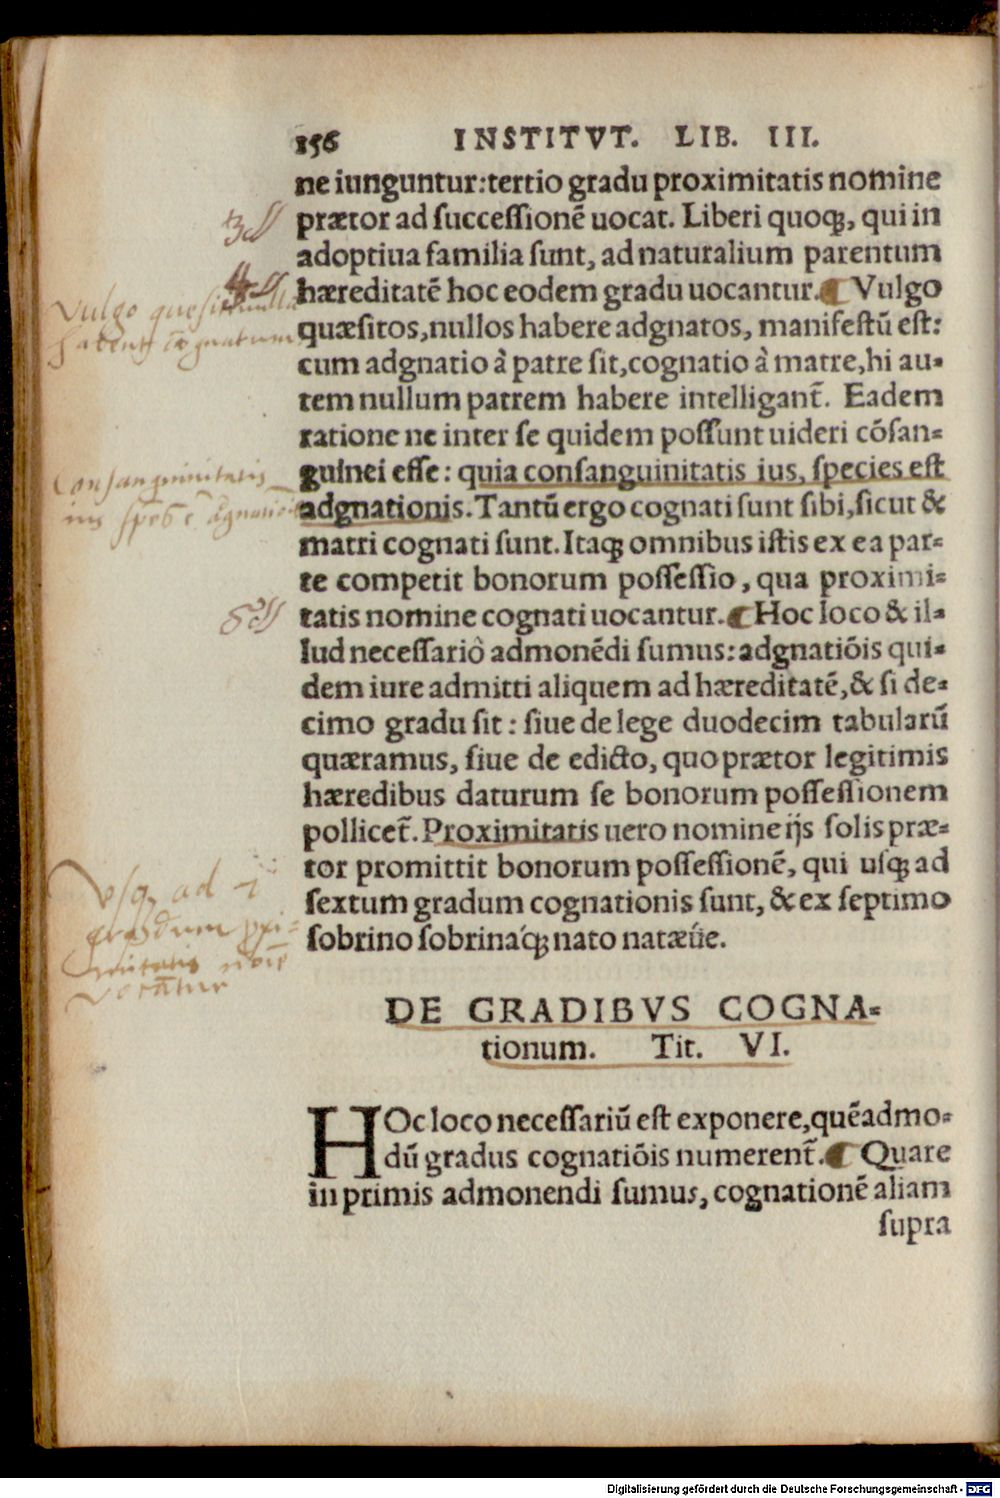 156 INSTITVT. LIB. III.
ne iunguntur: tertio gradu proximitatis nomine
prætor ad successionẽ uocat. Liberi quoq;, qui in
adoptiua familia sunt, ad naturalium parentum
hæreditatẽ hoc eodem gradu uocantur. Vulgo
quæsitos, nullos habere adgnatos, manifestũ est:
cum adgnatio à patre sit, cognatio à matre, hi au-
tem nullum patrem habere intelligant̃. Eadem
ratione ne inter se quidem possunt uideri cõsan-
guinei esse: quia consanguinitatis ius, species est
adgnationis. Tantũ ergo cognati sunt sibi, sicut &
matri cognati sunt. Itaq; omnibus istis ex ea par-
te competit bonorum possessio, qua proximi-
tatis nomine cognati uocantur. Hoc loco & il-
lud necessariò admonẽdi sumus: adgnatiõis qui-
dem iure admitti aliquem ad hæreditatẽ, & si de-
cimo gradu sit: siue de lege duodecim tabularũ
quæramus, siue de edicto, quo prætor legitimis
hæredibus daturum se bonorum possessionem
pollicet̃. Proximitatis uero nomine ijs solis præ-
tor promittit bonorum possessionẽ, qui usq; ad
sextum gradum cognationis sunt, & ex septimo
sobrino sobrinaq́; nato natæúe.
DE GRADIBVS COGNA-
tionum. Tit. VI.
HOc loco necessariũ est exponere, quẽadmo-
dũ gradus cognatiõis numerent̃. Quare
in primis admonendi sumus, cognationẽ aliam
supra
3
4
Vulgo quesiti nullũ
habent agnatum
Consanguinitatis
ius spẽs ẽ agnatiõis
5
Vsq; ad
gradum
vocãtur
Digitalisierung gefördert durch die Deutsche Forschungsgemeinschaft - DFG